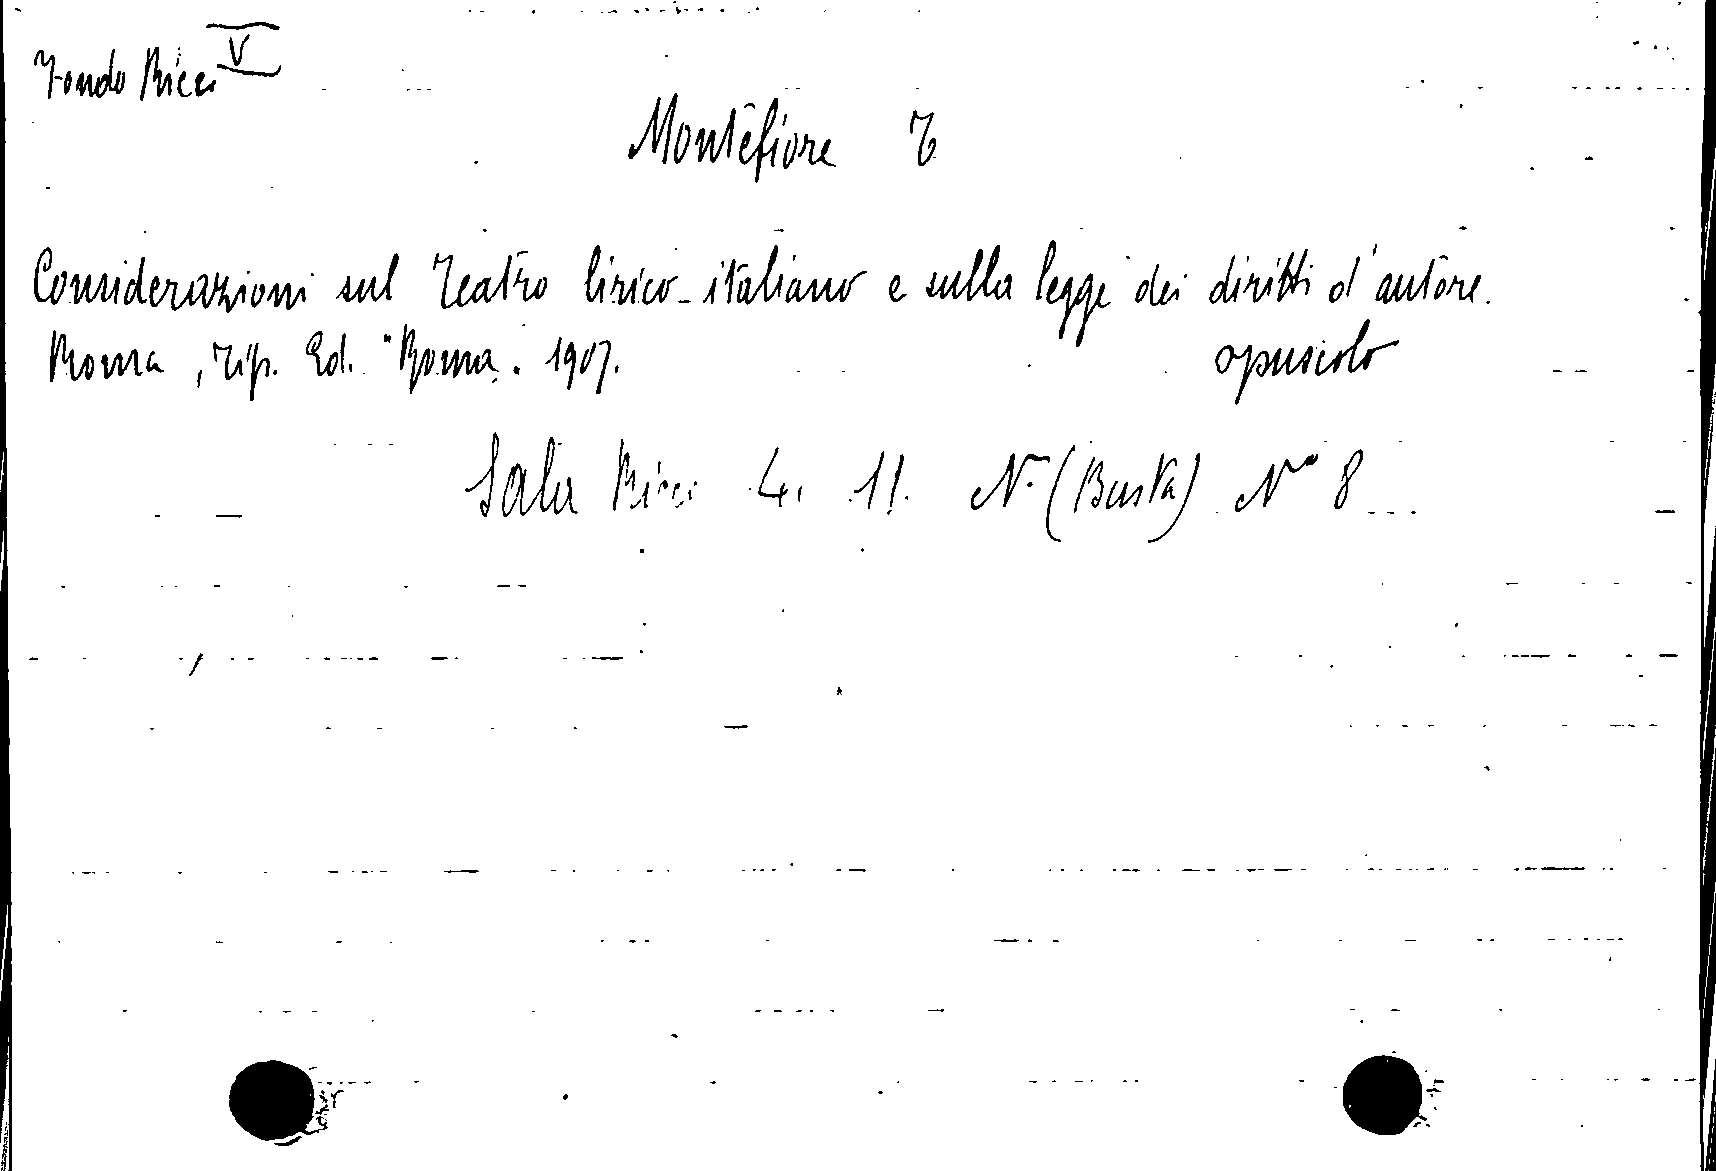 Fondo Ricci V
Montefiore T
Considerazioni sul Teatro lirico-italiano e sulla legge dei diritti d'autore.
Roma, Tip. Ed. "Roma". 1907. opuscolo
Sala Ricci 4. 11. N. (Busta) N° 8